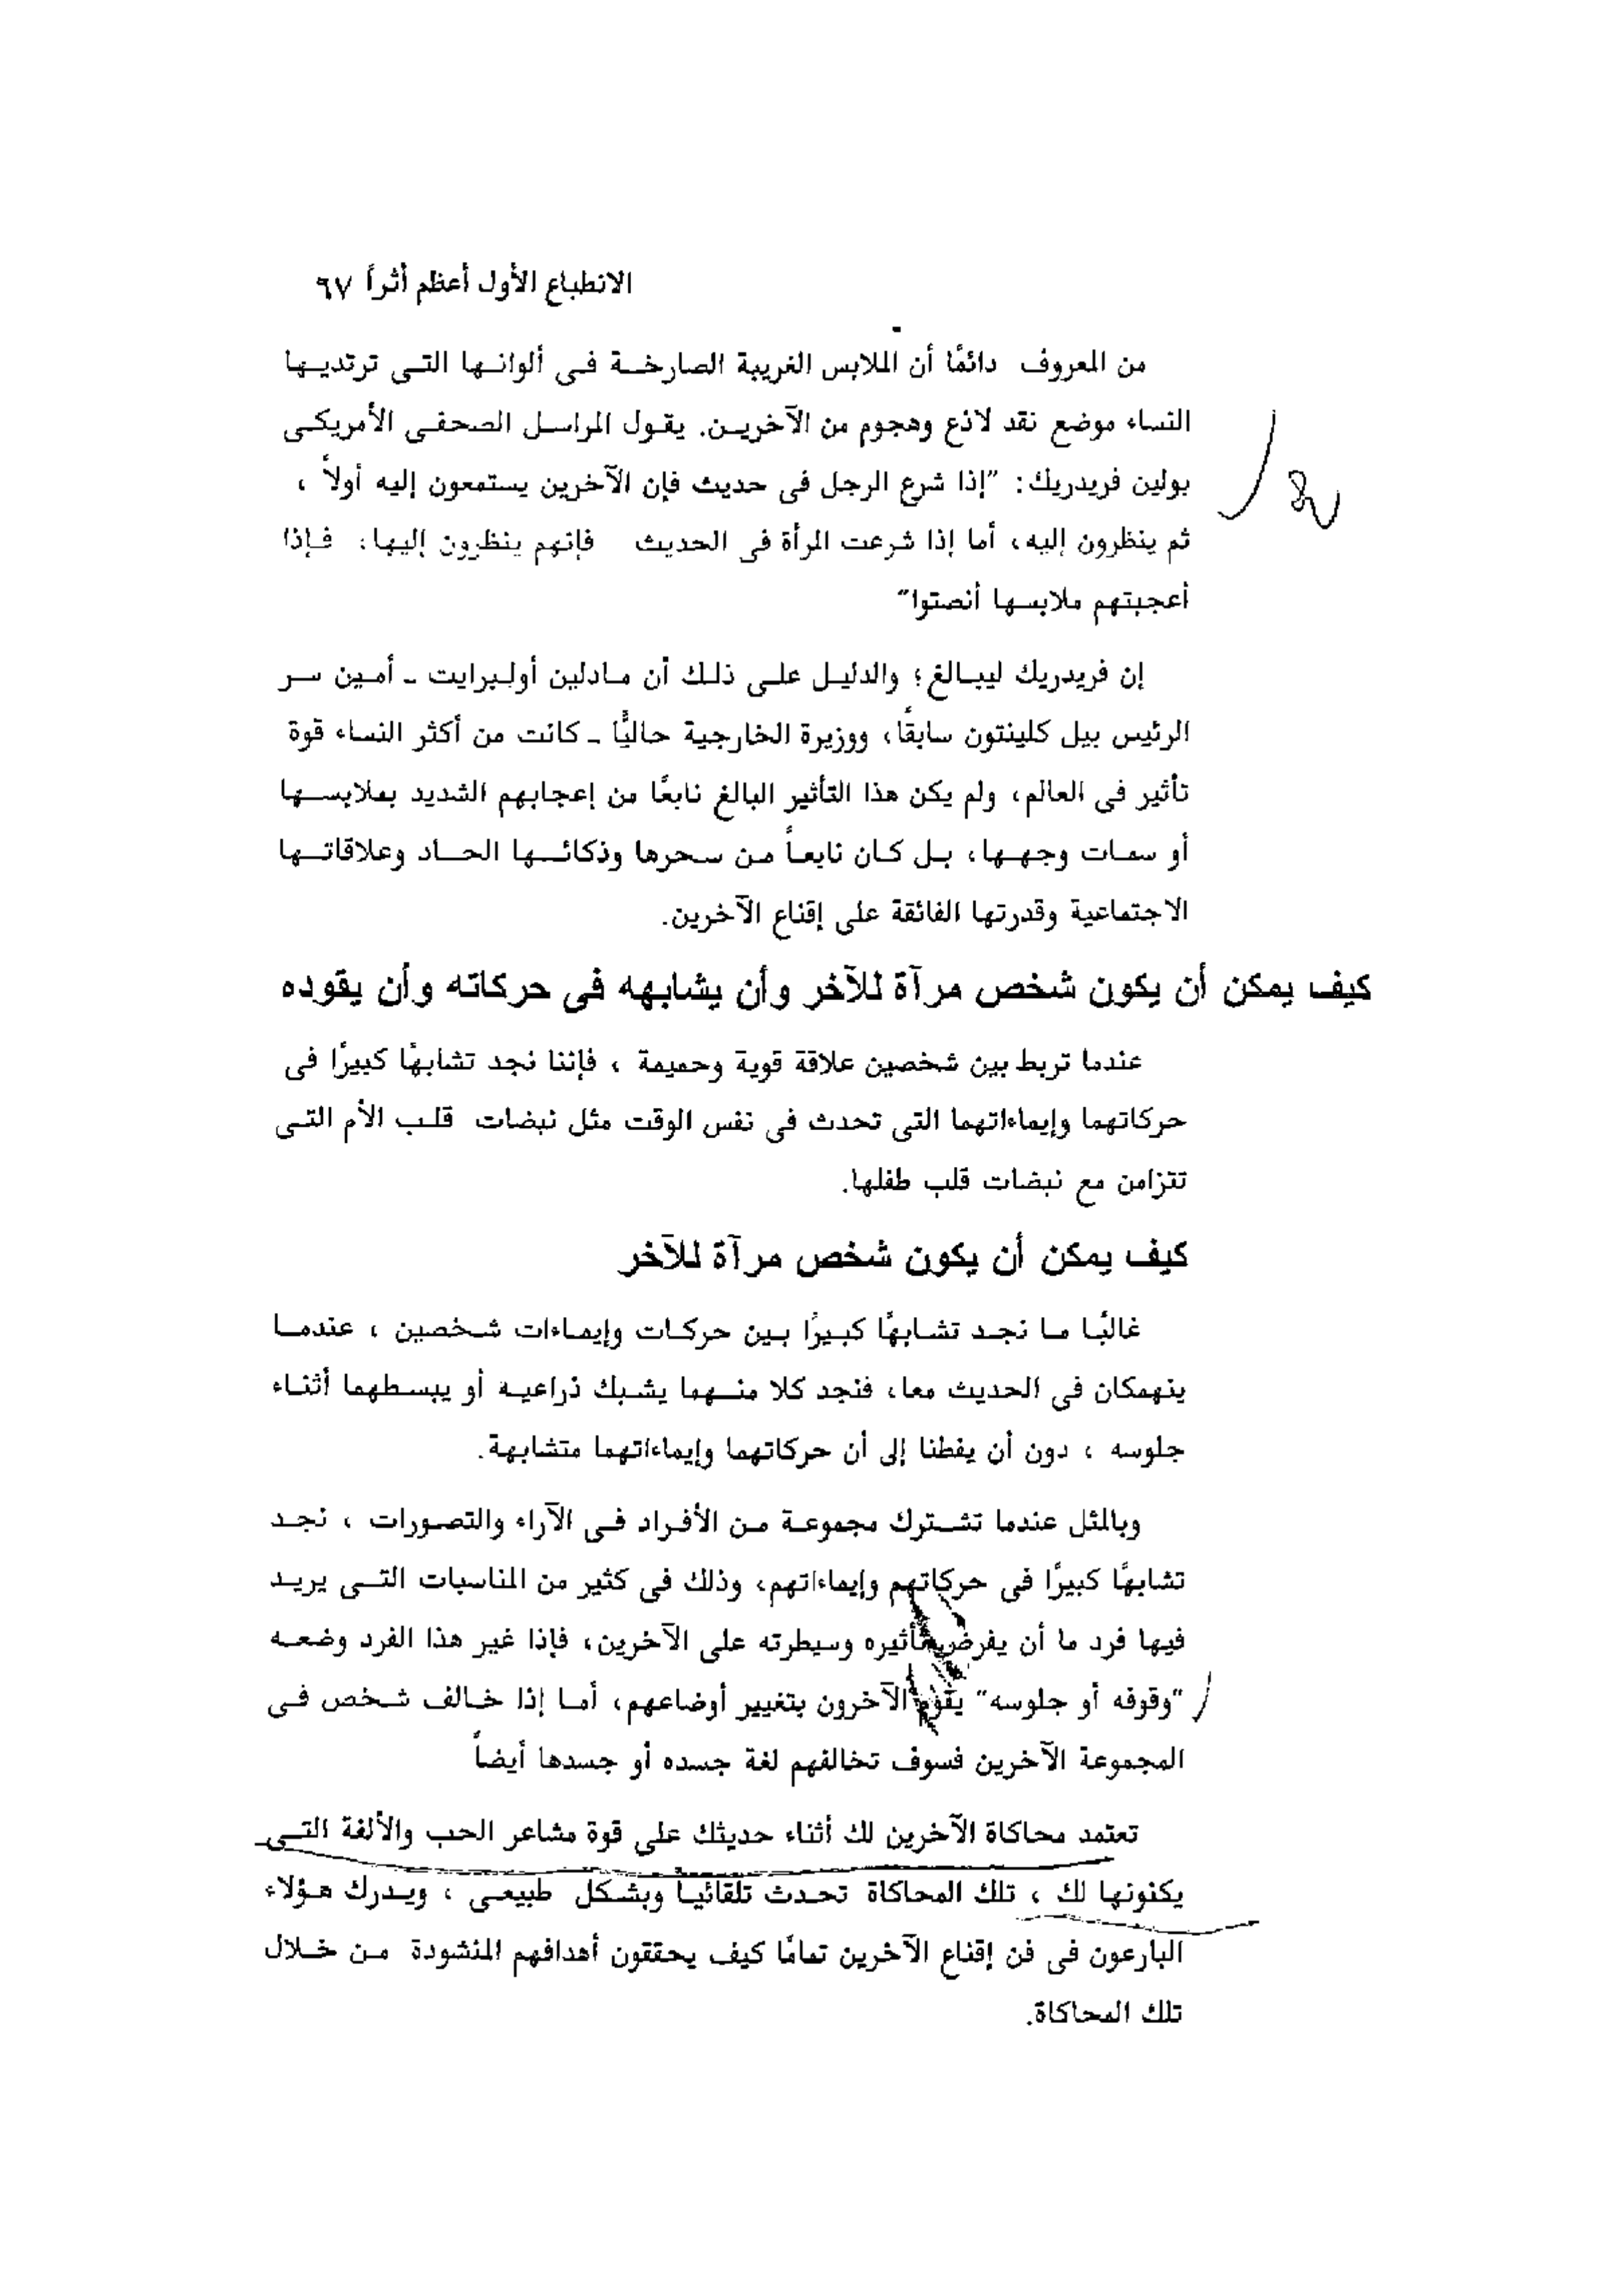 الانطباع الأول أعظم أثراً ٦٧
من المعروف دائمًا أن الملابس الغريبة الصارخة فى ألوانها التى ترتديها
النساء موضع نقد لاذع وهجوم من الآخرين. يقول المراسل الصحفى الأمريكى
بولين فريدريك: "إذا شرع الرجل فى حديث فإن الآخرين يستمعون إليه أولاً ،
ثم ينظرون إليه، أما إذا شرعت المرأة فى الحديث فإنهم ينظرون إليها، فإذا
أعجبتهم ملابسها أنصتوا"
إن فريدريك ليبالغ؛ والدليل على ذلك أن مادلين أولبرايت ـ أمين سر
الرئيس بيل كلينتون سابقًا، ووزيرة الخارجية حاليًّا ـ كانت من أكثر النساء قوة
تأثير فى العالم، ولم يكن هذا التأثير البالغ نابعًا من إعجابهم الشديد بملابسها
أو سمات وجهها، بل كان نابعاً من سحرها وذكائها الحاد وعلاقاتها
الاجتماعية وقدرتها الفائقة على إقناع الآخرين.
كيف يمكن أن يكون شخص مرآة للآخر وأن يشابهه فى حركاته وأن يقوده
عندما تربط بين شخصين علاقة قوية وحميمة ، فإننا نجد تشابهًا كبيرًا فى
حركاتهما وإيماءاتهما التى تحدث فى نفس الوقت مثل نبضات قلب الأم التى
تتزامن مع نبضات قلب طفلها.
كيف يمكن أن يكون شخص مرآة للآخر
غالبًا ما نجد تشابهًا كبيرًا بين حركات وإيماءات شخصين ، عندما
ينهمكان فى الحديث معا، فنجد كلا منهما يشبك ذراعيه أو يبسطهما أثناء
جلوسه ، دون أن يفطنا إلى أن حركاتهما وإيماءاتهما متشابهة.
وبالمثل عندما تشترك مجموعة من الأفراد فى الآراء والتصورات ، نجد
تشابهًا كبيرًا فى حركاتهم وإيماءاتهم، وذلك فى كثير من المناسبات التى يريد
فيها فرد ما أن يفرض تأثيره وسيطرته على الآخرين، فإذا غير هذا الفرد وضعه
"وقوفه أو جلوسه" يقوم الآخرون بتغيير أوضاعهم، أما إذا خالف شخص فى
المجموعة الآخرين فسوف تخالفهم لغة جسده أو جسدها أيضاً
تعتمد محاكاة الآخرين لك أثناء حديثك على قوة مشاعر الحب والألفة التى
يكنونها لك ، تلك المحاكاة تحدث تلقائياً وبشكل طبيعى ، ويدرك هؤلاء
البارعون فى فن إقناع الآخرين تمامًا كيف يحققون أهدافهم المنشودة من خلال
تلك المحاكاة.